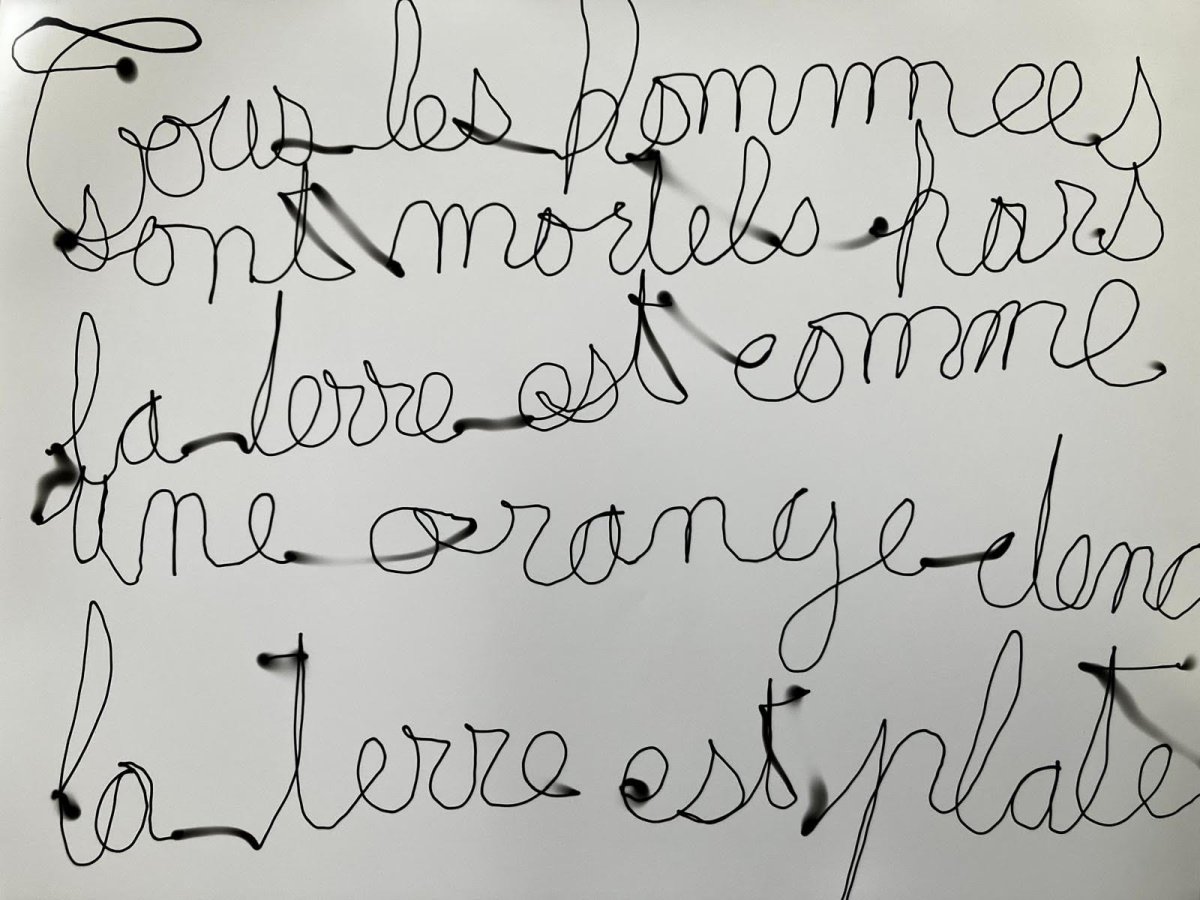 Tous les hommees
sont mortels hors
la terre est comme
une orange donc
la terre est plate